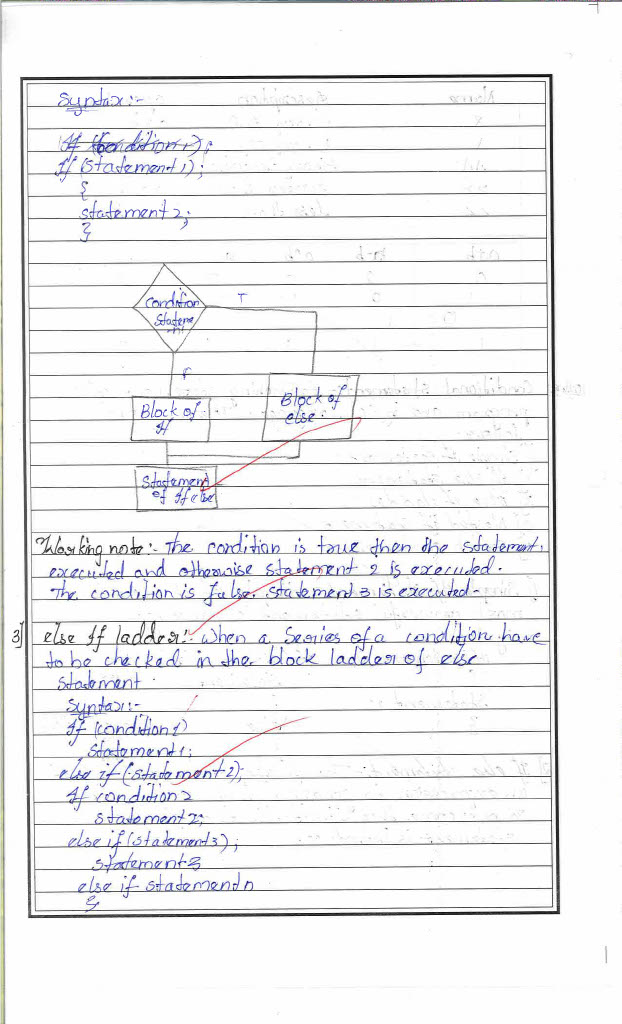 Syntax :-
If (condition 1);
If (Statement 1);
{
statement 2;
}
Condition
Stateme
nt
T
F
Block of
If
Block of
else.
Statement
of If else
Working note :- The condition is true then the statement 1
executed and otherwise statement 2 is executed.
The condition is false. statement 3 is executed-
3] else If ladder :- When a Series of a condition have
to be checked in the block ladder of else
statement.
Syntax :-
If (condition 1)
Statement 1;
else if (statement 2);
If condition 2
statement 2;
else if (statement 3);
statement 3
else if statement n
}